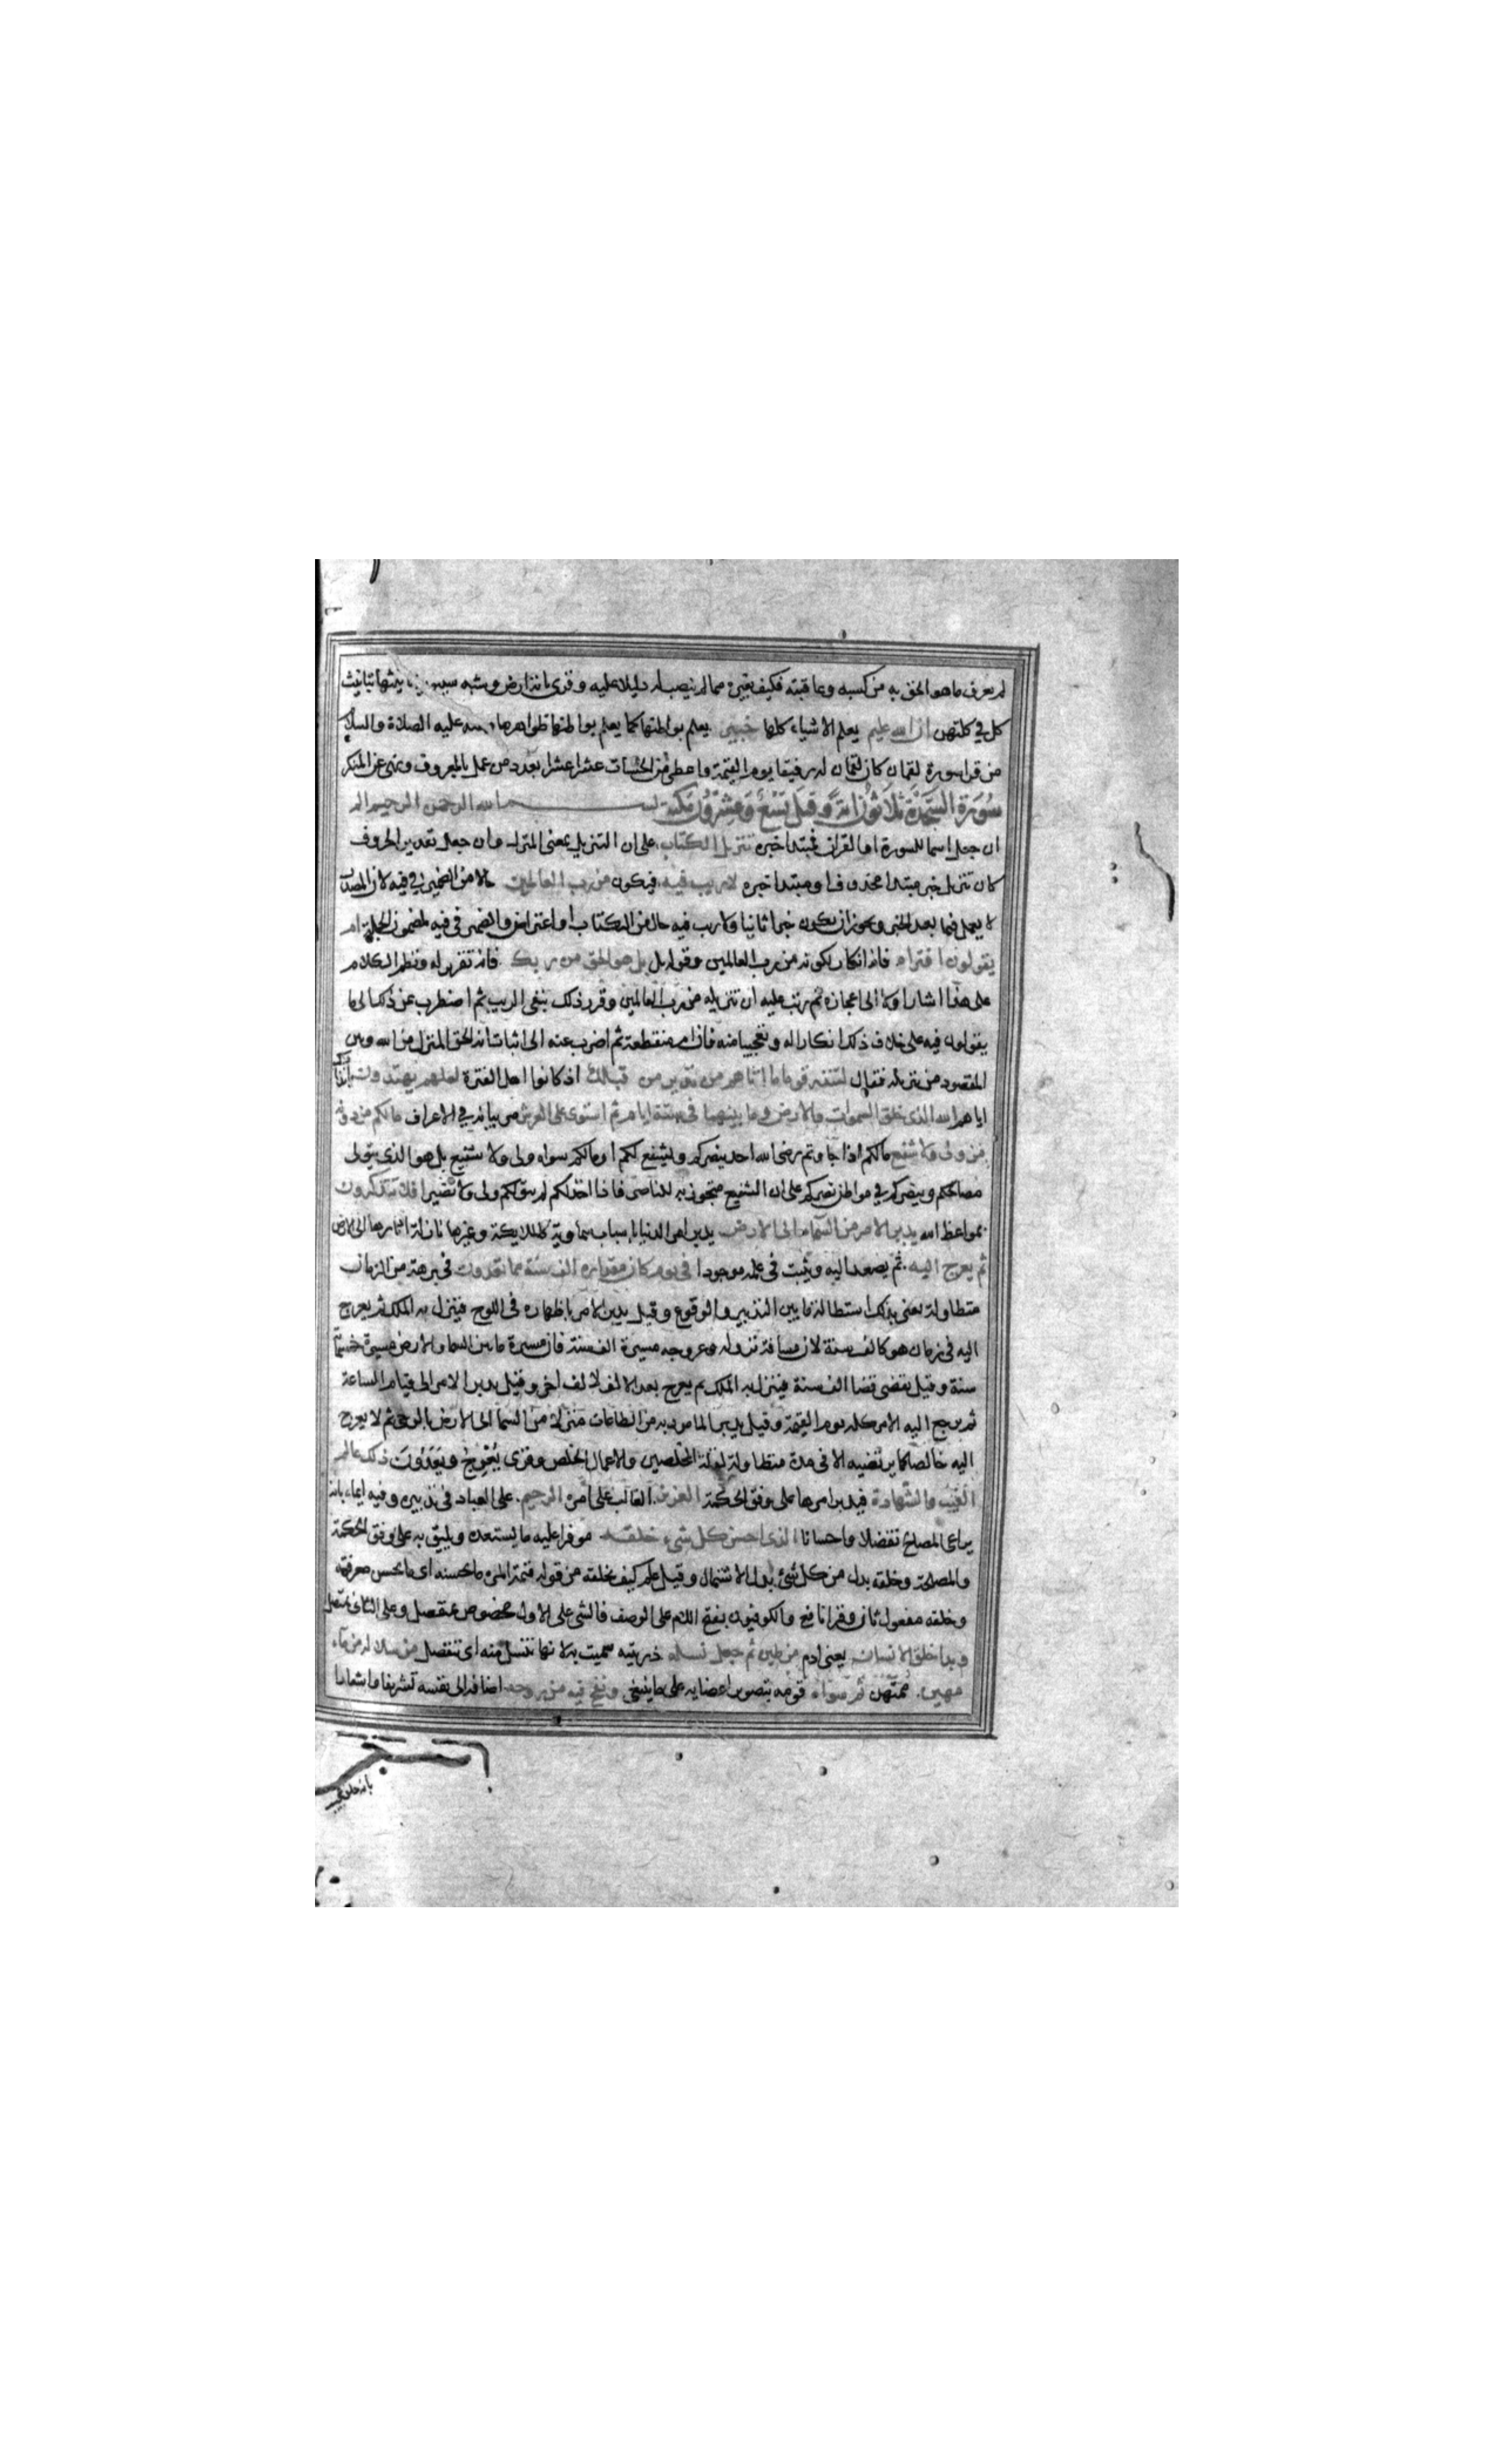 لم يعرف ما هو الحق به من كسبه وعاقبته فكيف بغيره مما لم ينصب له دليلا عليه وقرئ باية ارض وشبه سيبويه تانيثها بتانيث
كل في كلتهن ان الله عليم يعلم الاشياء كلها خبير يعلم بواطنها كما يعلم ظواهرها وعنه عليه الصلاة والسلام
من قرا سورة لقمان كان لقمان له رفيقا يوم القيمة واعطى من الحسنات عشرا عشرا بعدد من عمل بالمعروف ونهى عن المنكر
سُورَة السَّجْدَة ثلاثُونَ اية وَقيل تِسْعٌ وَعِشْرُونَ مكية بسم الله الرحمن الرحيم الم
ان جعل اسما للسورة او القران فمبتدا خبره تنزيل الكتاب على ان التنزيل بمعنى المنزل وان جعل تعديد الحروف
كان تنزيل خبر مبتدا محذوف او مبتدا خبره لا ريب فيه فيكون من رب العالمين حالا من الضمير في فيه لان المصدر
لا يعمل فيما بعد الخبر ويجوز ان يكون خبرا ثانيا ولا ريب فيه حال من الكتاب او اعتراض والضمير في فيه لمضمون الجملة ام
يقولون افتراه فانه انكار لكونه من رب العالمين وقوله بل هو الحق من ربك فانه تقرير له ونظم الكلام
على هذا اشار اولا الى اعجازه ثم رتب عليه ان تنزيله من رب العالمين وقرر ذلك بنفي الريب ثم اضطرب عن ذلك الى ما
يقولون فيه على خلاف ذلك انكارا له وتعجيبا منه فان ام منقطعة ثم اضرب عنه الى اثبات انه الحق المنزل من الله وبين
المقصود من تنزيله فقال لتنذر قوما ما اتاهم من نذير من قبلك اذ كانوا اهل الفترة لعلهم يهتدون بانذارك
اياهم الله الذي خلق السموات والارض وما بينهما في ستة ايام ثم استوى على العرش مر بيانه في الاعراف مالكم من دونه
من ولي ولا شفيع مالكم اذا جاوزتم رضى الله احد ينصركم ويشفع لكم او مالكم سواه ولي ولا شفيع بل هو الذي يتولى
مصالحكم وينصركم في مواطن نصركم على ان الشفيع متجوز به للناصر فاذا اخذلكم لم يبق لكم ولي ولا نصير افلا تتذكرون
بمواعظ الله يدبر الامر من السماء الى الارض يدبر امر الدنيا باسباب سماوية كالملايكة وغيرها نازلة اثارها الى الارض
ثم يعرج اليه ثم يصعد اليه ويثبت في علمه موجودا في يوم كان مقداره الف سنة مما تعدون في برهة من الزمان
متطاولة يعني بذلك استطالة ما بين التدبير والوقوع وقيل يدبر الامر باظهاره في اللوح فينزل به الملك ثم يعرج
اليه في زمان هو كالف سنة لان مسافة نزوله وعروجه مسيرة الف سنة فان مسيرة ما بين السما والارض مسيرة خمسمائة
سنة وقيل يقضي قضا الف سنة فينزل به الملك ثم يعرج بعد الالف لالف اخر وقيل يدبر الامر الى قيام الساعة
ثم يرجع اليه الامر كله يوم القيمة وقيل يدبر المامور به من الطاعات منزلا من السما الى الارض بالوحي ثم لا يعرج
اليه خالصا كما يرتضيه الا في مدة متطاولة لقلة المخلصين والاعمال الخلص وقرئ يُعْرَجُ ويَعُدُّونَ ذلك عالم
الغيب والشهادة فيدبر امرها على وفق الحكمة العزيز الغالب على امره الرحيم على العباد في تدبيره وفيه ايماء بانه
يراعي المصالح تفضلا واحسانا الذي احسن كل شيء خلقه موفرا عليه ما يستعده ويليق به على وفق الحكمة
والمصلحة وخلقه بدل من كل شئ بدل الاشتمال وقيل علم كيف يخلقه من قوله قيمة المرء ما يحسنه اي ما يحسن معرفته
وخلقه مفعول ثان وقرا نافع والكوفيون بفتح اللام على الوصف فالشي على الاول مخصوص بمنفصل وعلى الثاني بمتصل
وبدا خلق الانسان يعني ادم من طين ثم جعل نسله ذريته سميت به لانها تنسل منه اي تنفصل من سلالة من ماء
مهين ممتهن ثم سواه قومه بتصوير اعضايه على ما ينبغي ونفخ فيه من روحه اضافه الى نفسه تشريفا واشعارا
بانه خلق عجيب